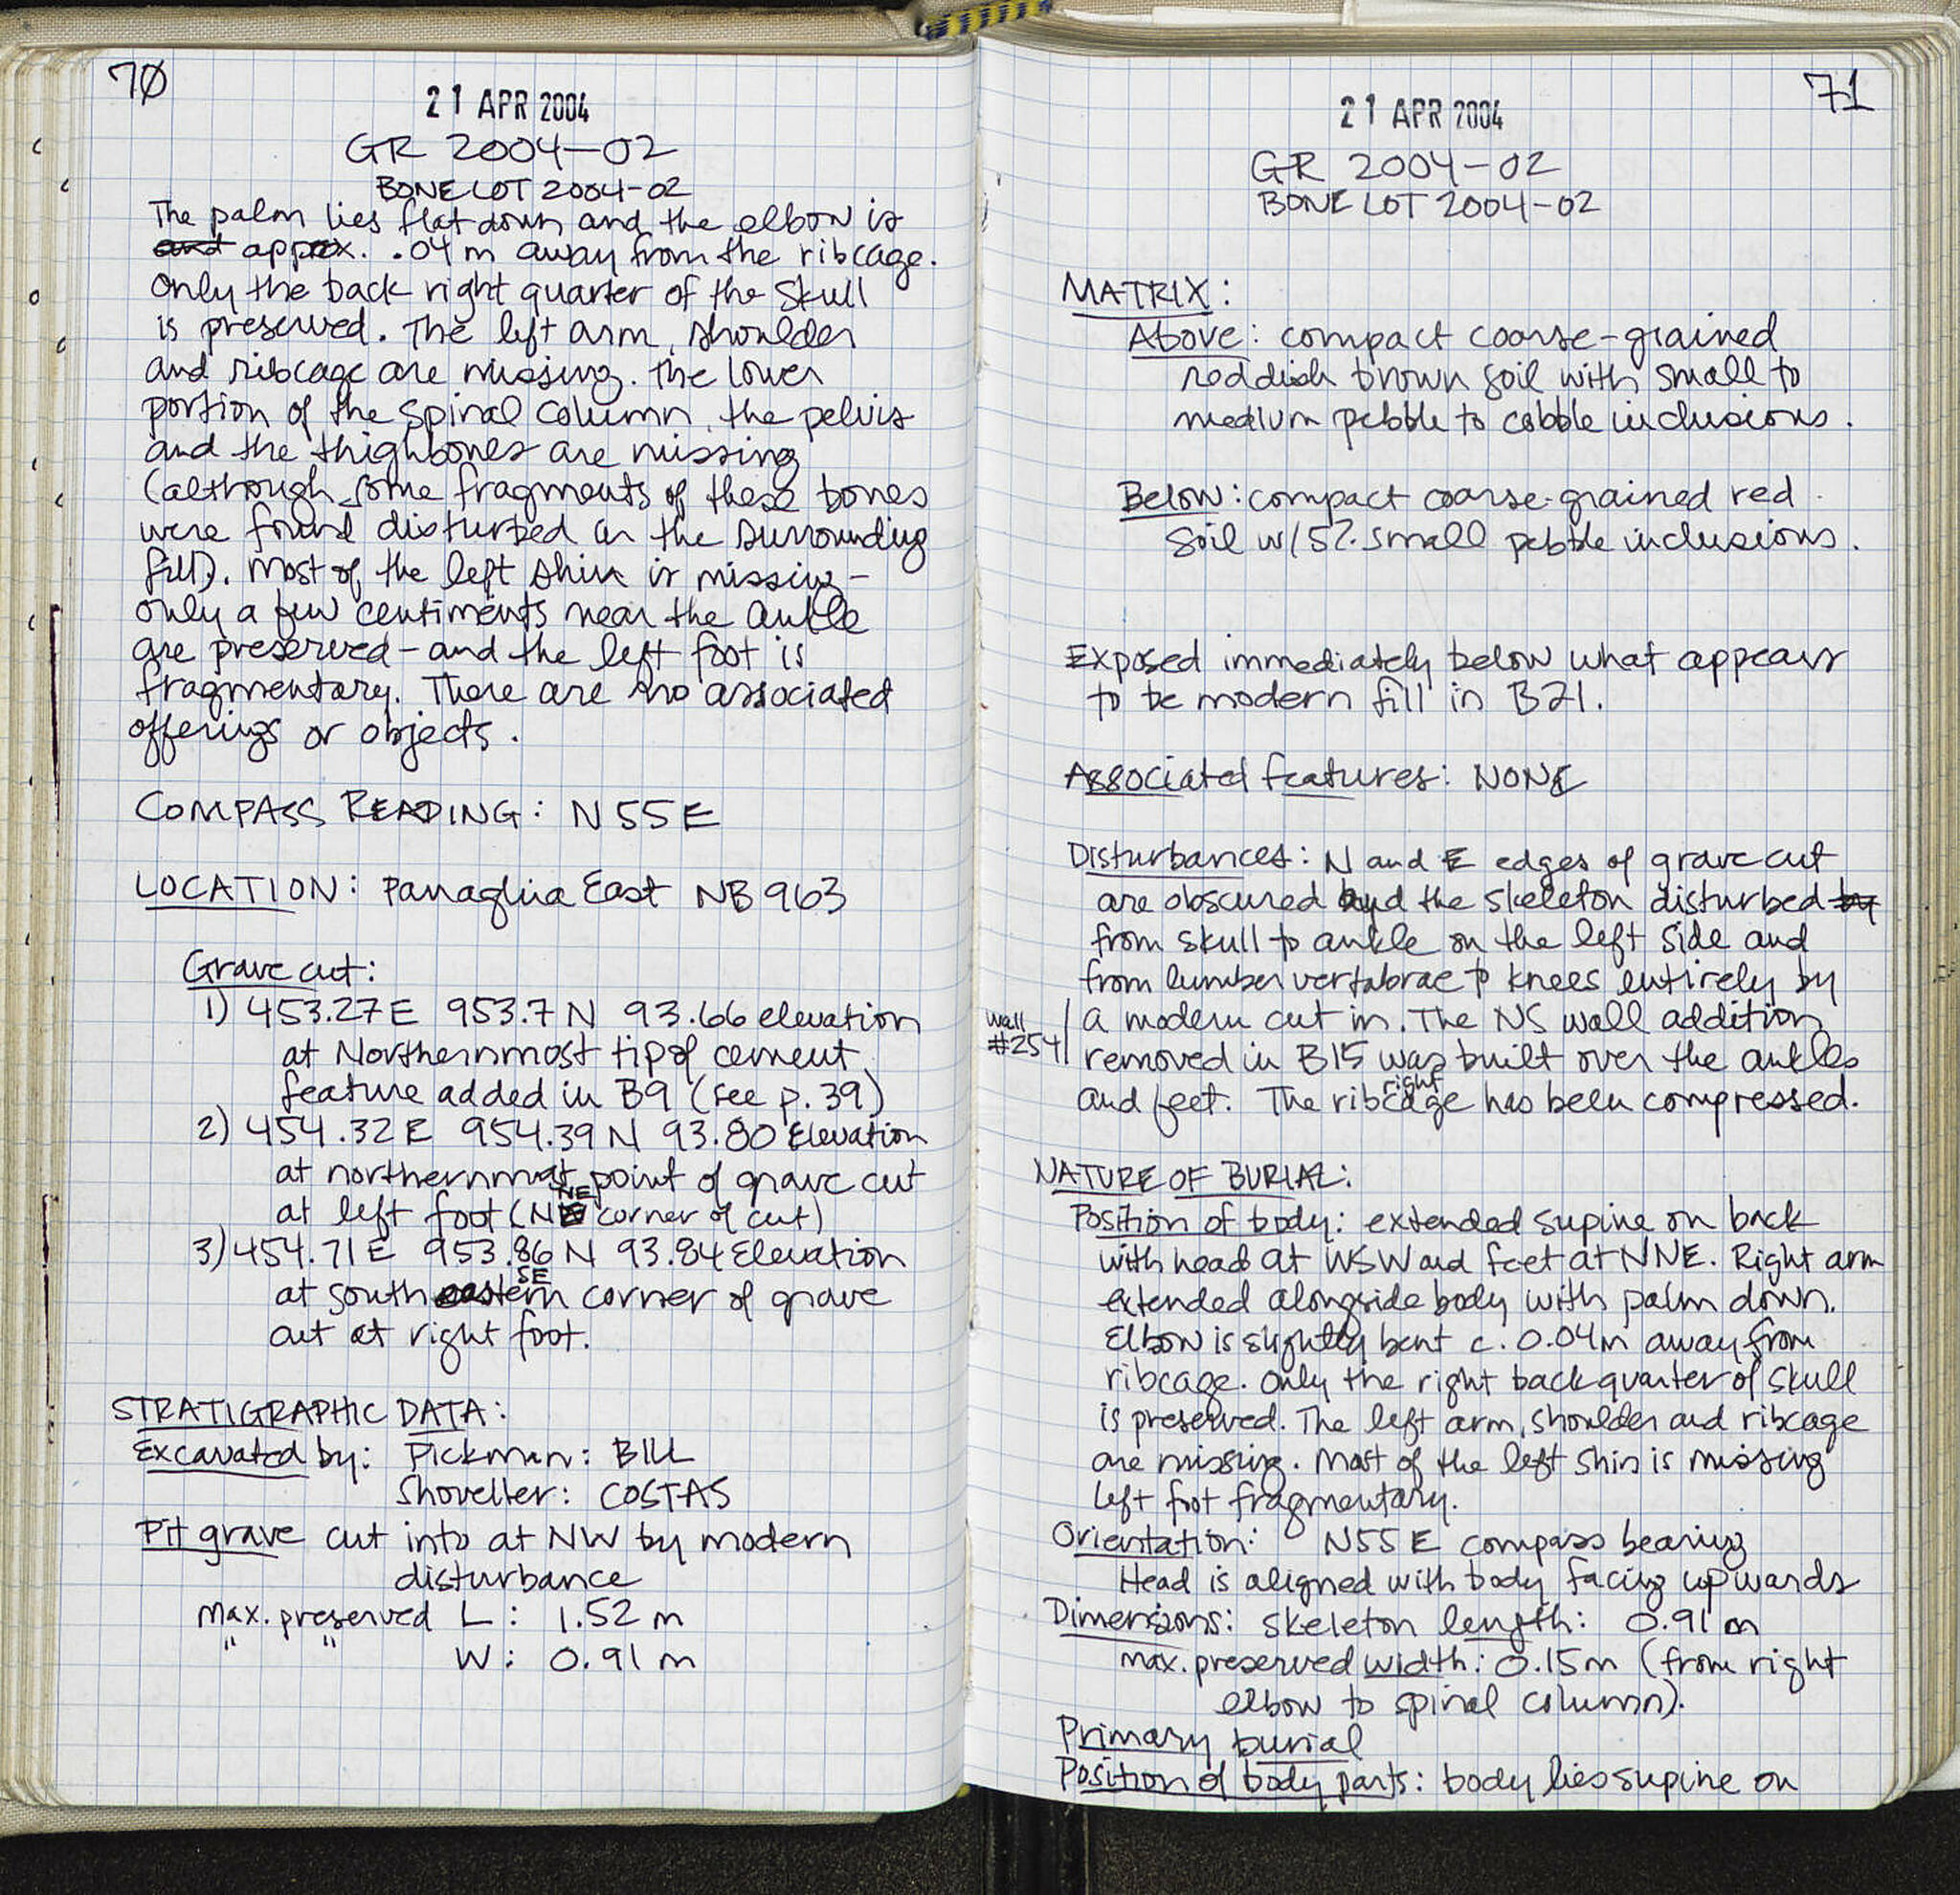 70
21 APR 2004
GR 2004-02
BONE LOT 2004-02
The palm lies flat down and the elbow is
and approx. .04m away from the ribcage.
Only the back right quarter of the skull
is preserved. The left arm, shoulder
and ribcage are missing. The lower
portion of the spinal column, the pelvis
and the thighbones are missing
(although some fragments of these bones
were found disturbed in the surrounding
fill). Most of the left shin is missing -
only a few centiments near the ankle
are preserved - and the left foot is
fragmentary. There are no associated
offerings or objects.
COMPASS READING: N 55 E
LOCATION: Panaghia East NB 963
Grave cut:
1) 453.27 E 953.7 N 93.66 elevation
at Northernmost tip of cement
feature added in B9 (see p. 39)
2) 454.32 E 954.39 N 93.80 Elevation
at northernmost point of grave cut
at left foot (NE corner of cut)
3) 454.71 E 953.86 N 93.84 Elevation
at southeastern SE corner of grave
cut at right foot.
STRATIGRAPHIC DATA:
Excavated by: Pickman: BILL
Shoveller: COSTAS
Pit grave cut into at NW by modern
disturbance
max. preserved L: 1.52 m
" " W: 0.91 m
71
21 APR 2004
GR 2004-02
BONE LOT 2004-02
MATRIX:
Above: compact coarse-grained
reddish brown soil with small to
medium pebble to cobble inclusions.
Below: compact coarse-grained red
soil w/ 5% small pebble inclusions.
Exposed immediately below what appears
to be modern fill in B21.
Associated features: NONE
Disturbances: N and E edges of grave cut
are obscured and the skeleton disturbed by
from skull to ankle on the left side and
from lumber vertabrae to knees entirely by
a modern cut in. The NS wall addition
wall #254
removed in B15 was built over the ankles
and feet. The right ribcage has been compressed.
NATURE OF BURIAL:
Position of body: extended supine on back
with head at WSW and feet at NNE. Right arm
extended alongside body with palm down.
Elbow is slightly bent c. 0.04m away from
ribcage. Only the right back quarter of skull
is preserved. The left arm, shoulder and ribcage
are missing. Most of the left shin is missing
left foot fragmentary.
Orientation: N55E compass bearing
Head is aligned with body facing upwards
Dimensions: skeleton length: 0.91 m
max. preserved width: 0.15m (from right
elbow to spinal column).
Primary burial
Position of body parts: body lies supine on